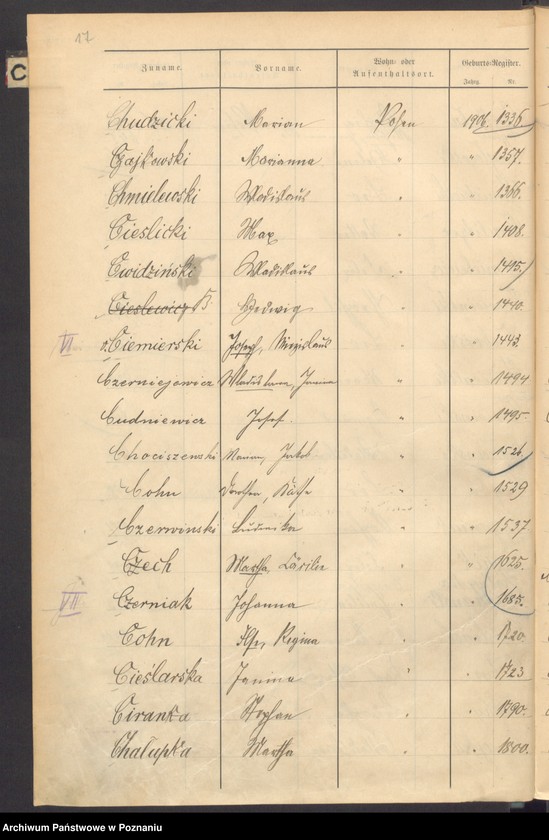 17
C
Zuname. Vorname. Wohn- oder Aufenthaltsort. Geburts-Register.
Jahrg. Nr.
Chudzicki Marian Posen 1906. 1336.
Czajkowski Marianna " " 1357.
Chmielewski Wladislaus " " 1366.
Cieslicki Max " " 1408.
Cwidziński Wladislaus " " 1415.
Cieslewicz Hedwig " " 1440.
VI v. Ciemierski Joseph, " " 1443.
Czerniejewicz Janina " " 1494
Cudniewicz Josef " " 1495
Chociszewski Jakob " " 1526
Cohn Dorothea, Käthe " " 1529
Czerwinski Ludwika " " 1537
Czech Martha, Cäcilie " " 1625.
VII Czerniak Johanna " " 1685.
Cohn Ilse, Regina " " 1720.
Cieślarska Janina " " 1723
Ciranka Stephan " " 1790.
Chałupka Martha " " 1800.
Archiwum Państwowe w Poznaniu